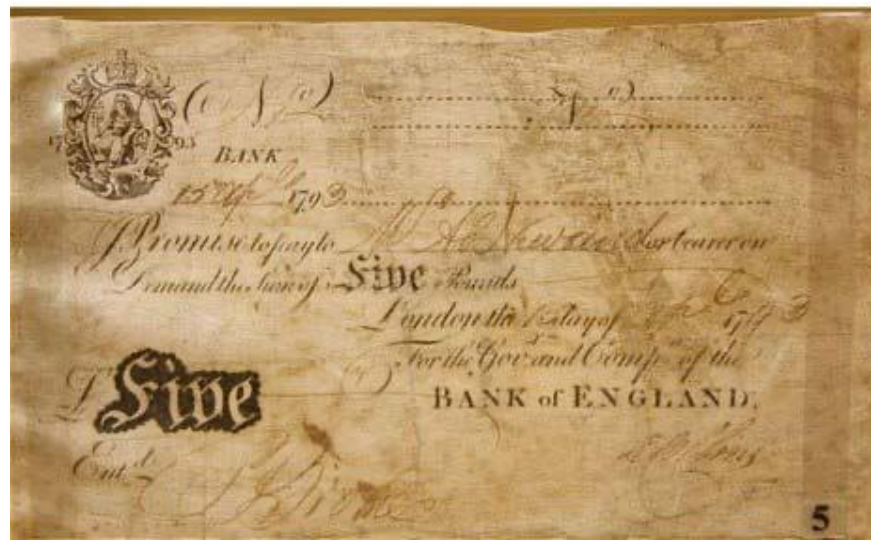 No No
17 93
BANK
15 Ap 1793
I Promise to pay to Mr or bearer on
Demand the Sum of Five Pounds
London the 15 day of 1793
For the Gov.r and Comp.a of the
£ Five
BANK of ENGLAND.
Ent.d
5